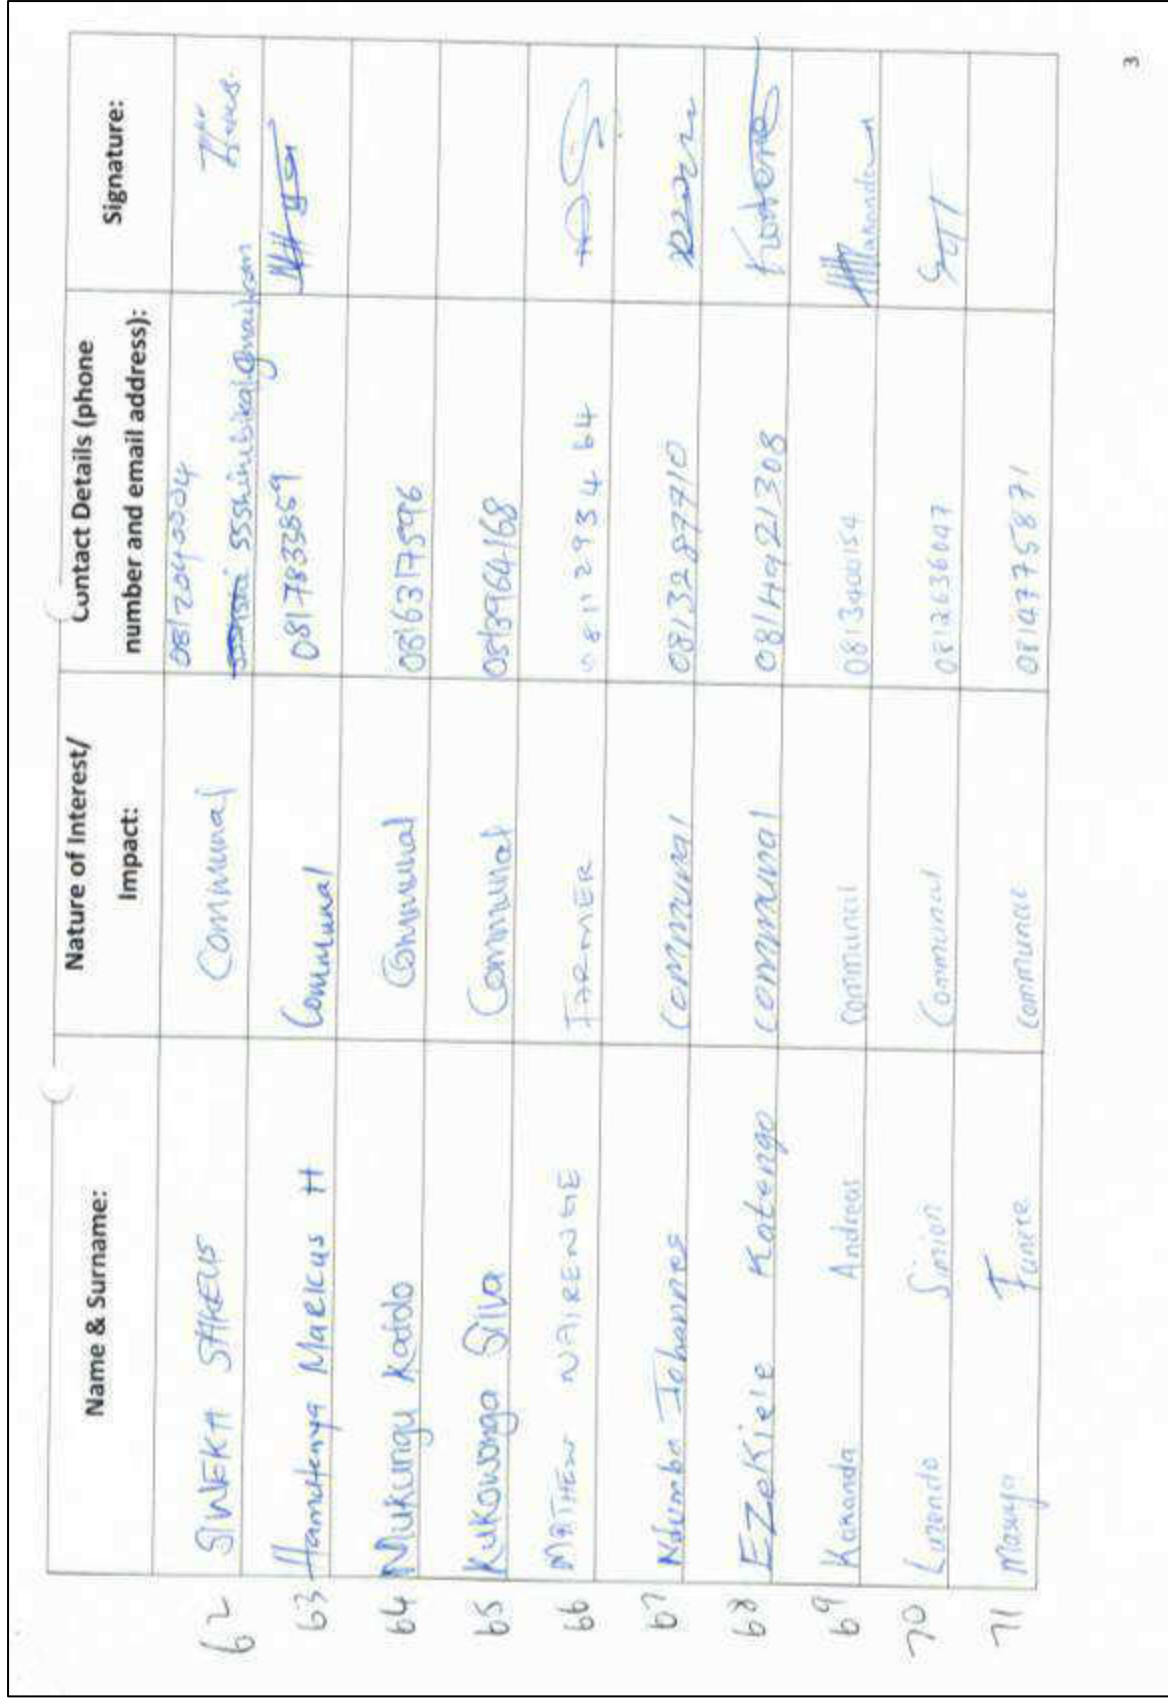 Name & Surname:
Nature of Interest/
Impact:
Contact Details (phone
number and email address):
Signature:
62 SIWEKA Communal 0812040004
63 Hamutenya Markus H Communal 0817833859
64 Mukungu Kadolo Communal 0816317596
65 Kukowonga Silva Communal 0813964168
66 MATHEW NAIRENGE FARMER 0811293464
67 Ndumba Johannes Communal 0813287710
68 EZekiele Katengo communal 0814921308
69 Kananda Andreas Communal 0813400154
70 Simion Communal 0812636047
71 Communal 0814775871
3